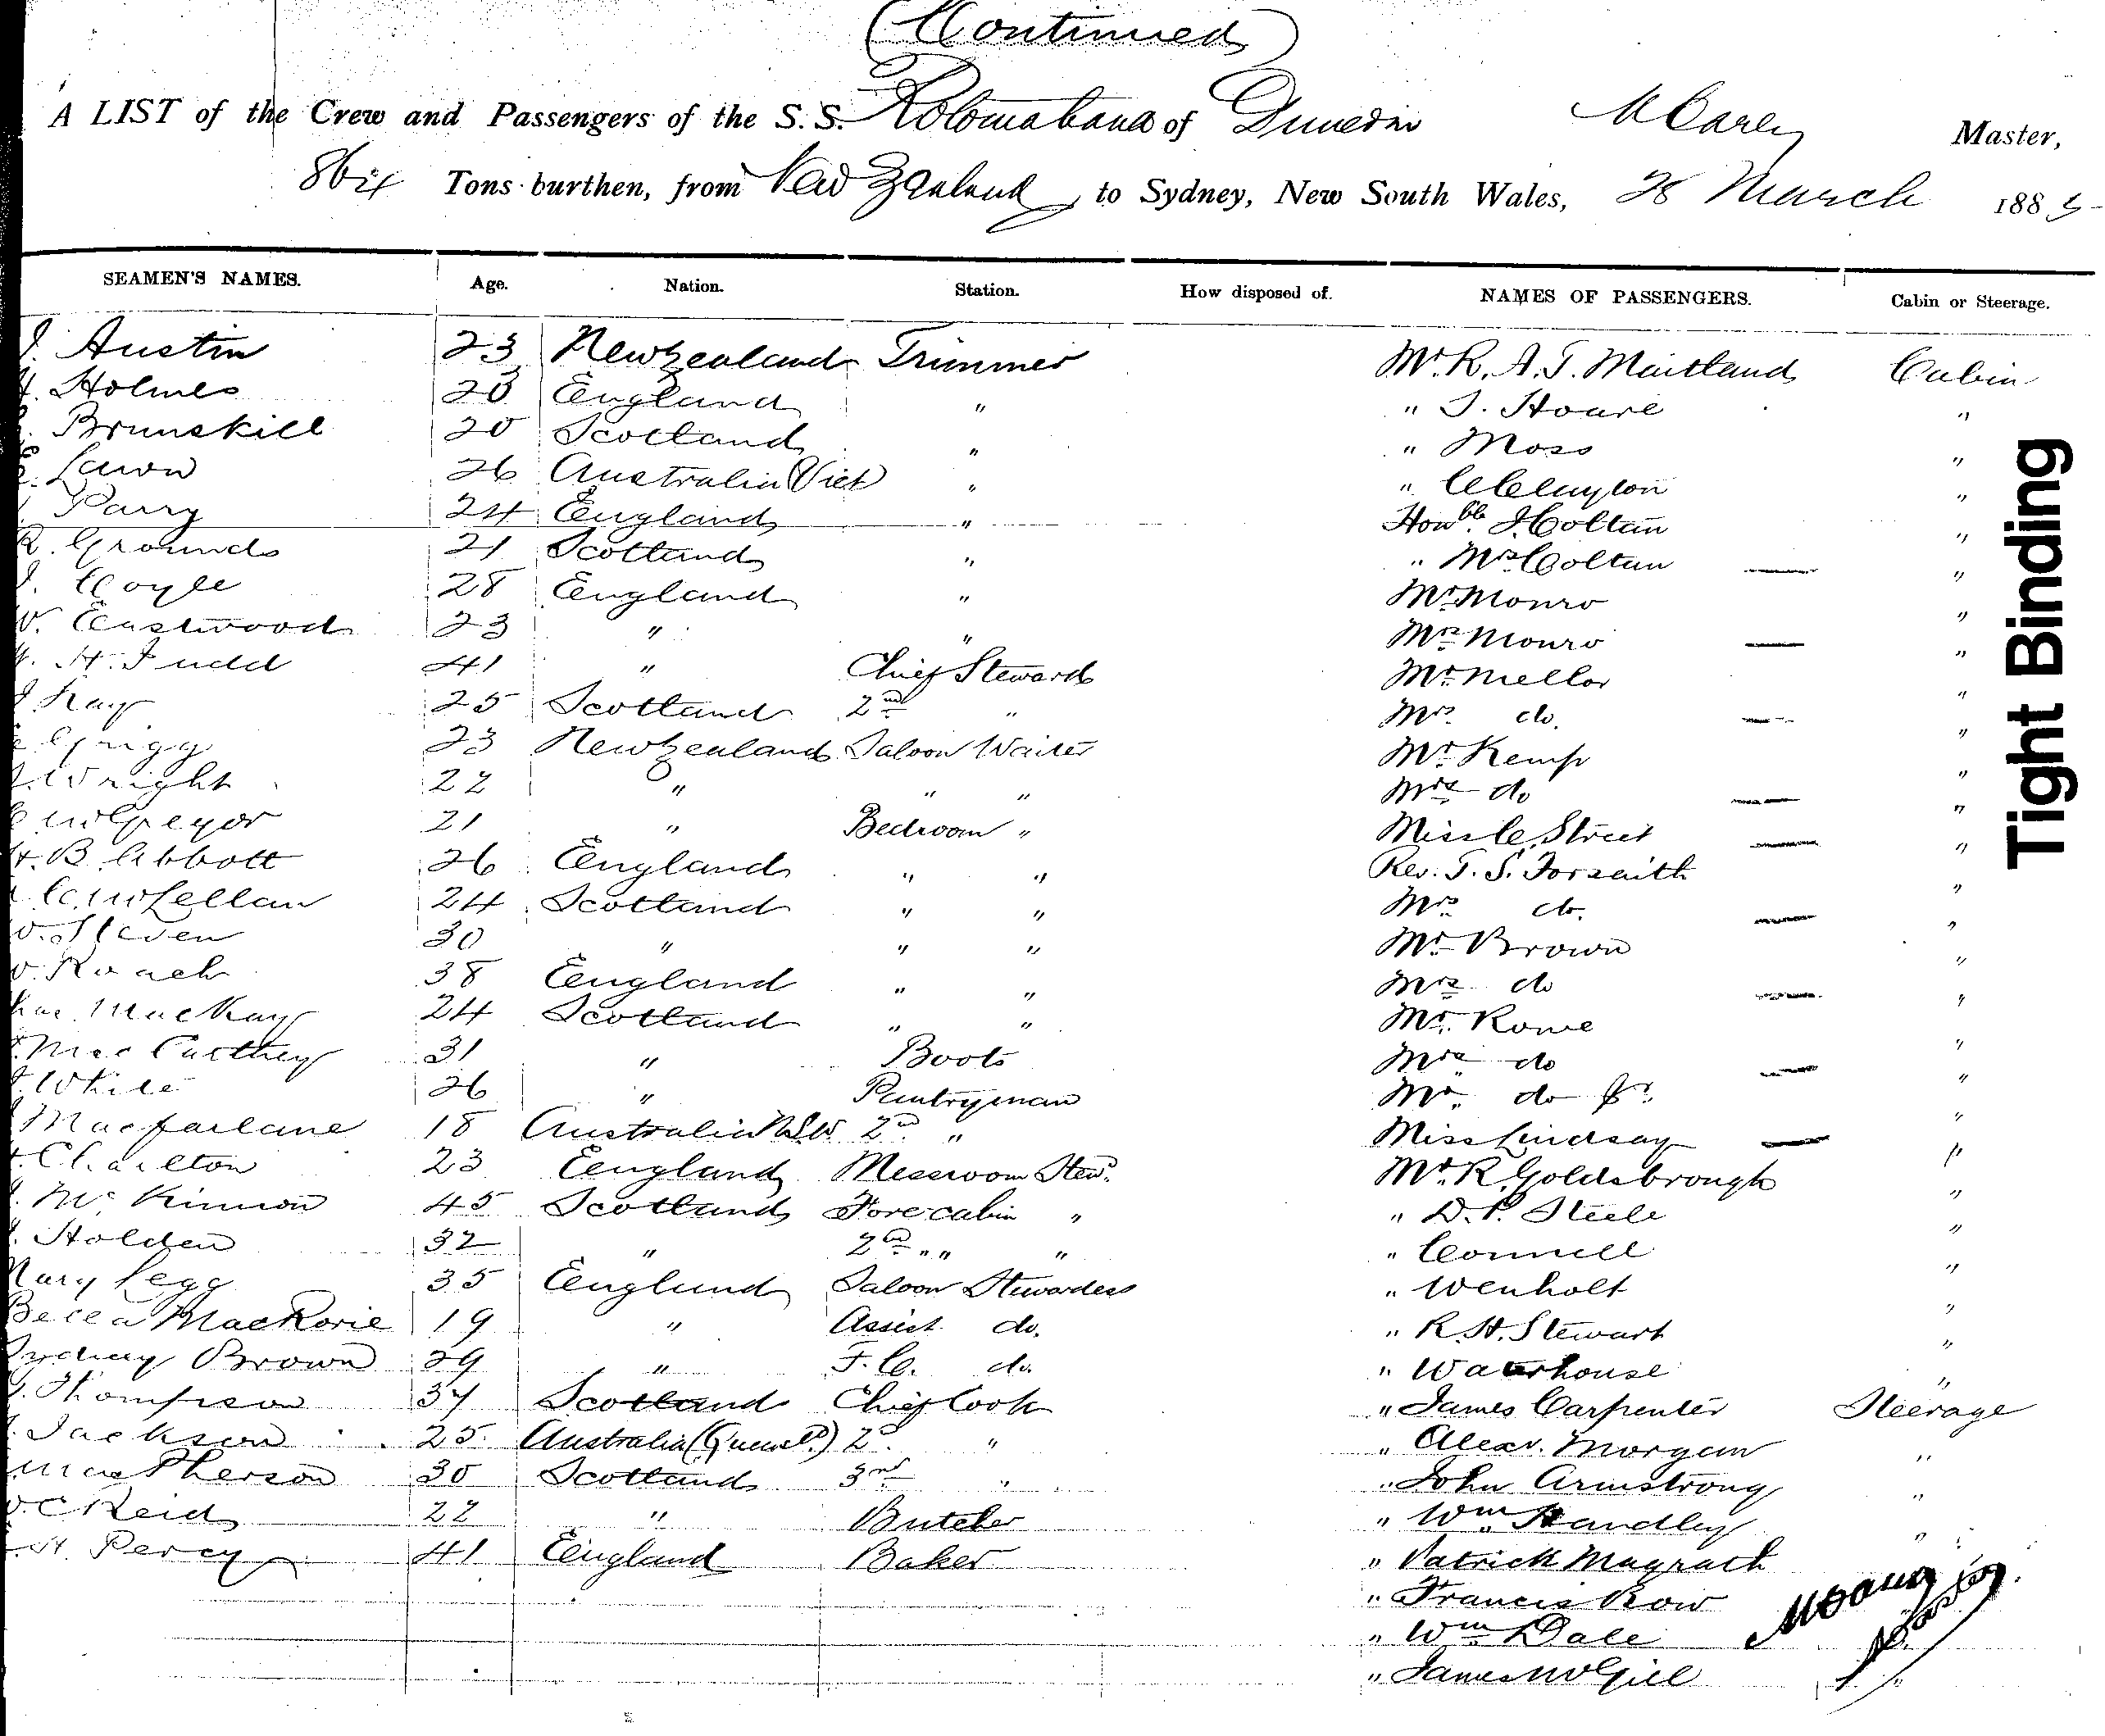 (Continued)
A LIST of the Crew and Passengers of the S.S. Rotomahana of Dunedin M Carey Master,
864 Tons burthen, from New Zealand to Sydney, New South Wales, 28 March 1885
SEAMEN'S NAMES. Age. Nation. Station. How disposed of. NAMES OF PASSENGERS. Cabin or Steerage.
J. Austin 23 New Zealand Trimmer Mr. R. A. T. Maitland Cabin
H. Holmes 23 England " " J. Hoare "
Brunskill 20 Scotland " " Moss "
Lawn 26 Australia Vict " " Clayton "
Parry 24 England " Honble. J. Coltan "
R. Grounds 21 Scotland " " Mrs Coltan — "
J. Coyle 28 England " Mr. Monro "
W. Eastwood 23 " " Mrs Monro — "
H. Judd 41 " Chief Steward Mr. Mellor "
J Kay 25 Scotland 2nd " Mrs do. — "
Grigg 23 New Zealand Saloon Waiter Mr Kemp "
J. Wright 22 " " " Mrs do — "
McGregor 21 " Bedroom " Miss C. Street — "
H. B. Abbott 26 England " " Rev. T. S. Forsaith "
C. McLellan 24 Scotland " " Mrs do. — "
W. Steven 30 " " " Mr Brown "
W. Roach 38 England " " Mrs do — "
Chas. MacKay 24 Scotland " " Mr. Rowe "
MacCarthey 31 " Boots Mrs do — "
J. White 26 " Pantryman Mr. do Jr. "
Macfarlane 18 Australia N.S.W 2nd " Miss Lindsay — "
Charlton 23 England Messroom Stewd. Mr. R. Goldsbrough "
J. McKinnon 45 Scotland Forecabin " " D. P. Steele "
J. Holden 32 " 2nd " " " " Connell "
Mary Legg 35 England Saloon Stewardess " Wenholt "
Becca MacKorie 19 " Assist. do. " R. H. Stewart "
Sydney Brown 29 " F. C. do. " Waterhouse "
J. Thompson 37 Scotland Chief Cook " James Carpenter Steerage
J. Jackson 25 Australia (Queensd.) 2d. " " Alexr. Morgan "
MacPherson 30 Scotland 3rd " " John Armstrong "
W. C Reid 22 " Butcher " Wm. Handley "
H. Percy 41 England Baker " Patrick Magrath
" Francis Row
" Wm Dale
" James McGill "
Tight Binding